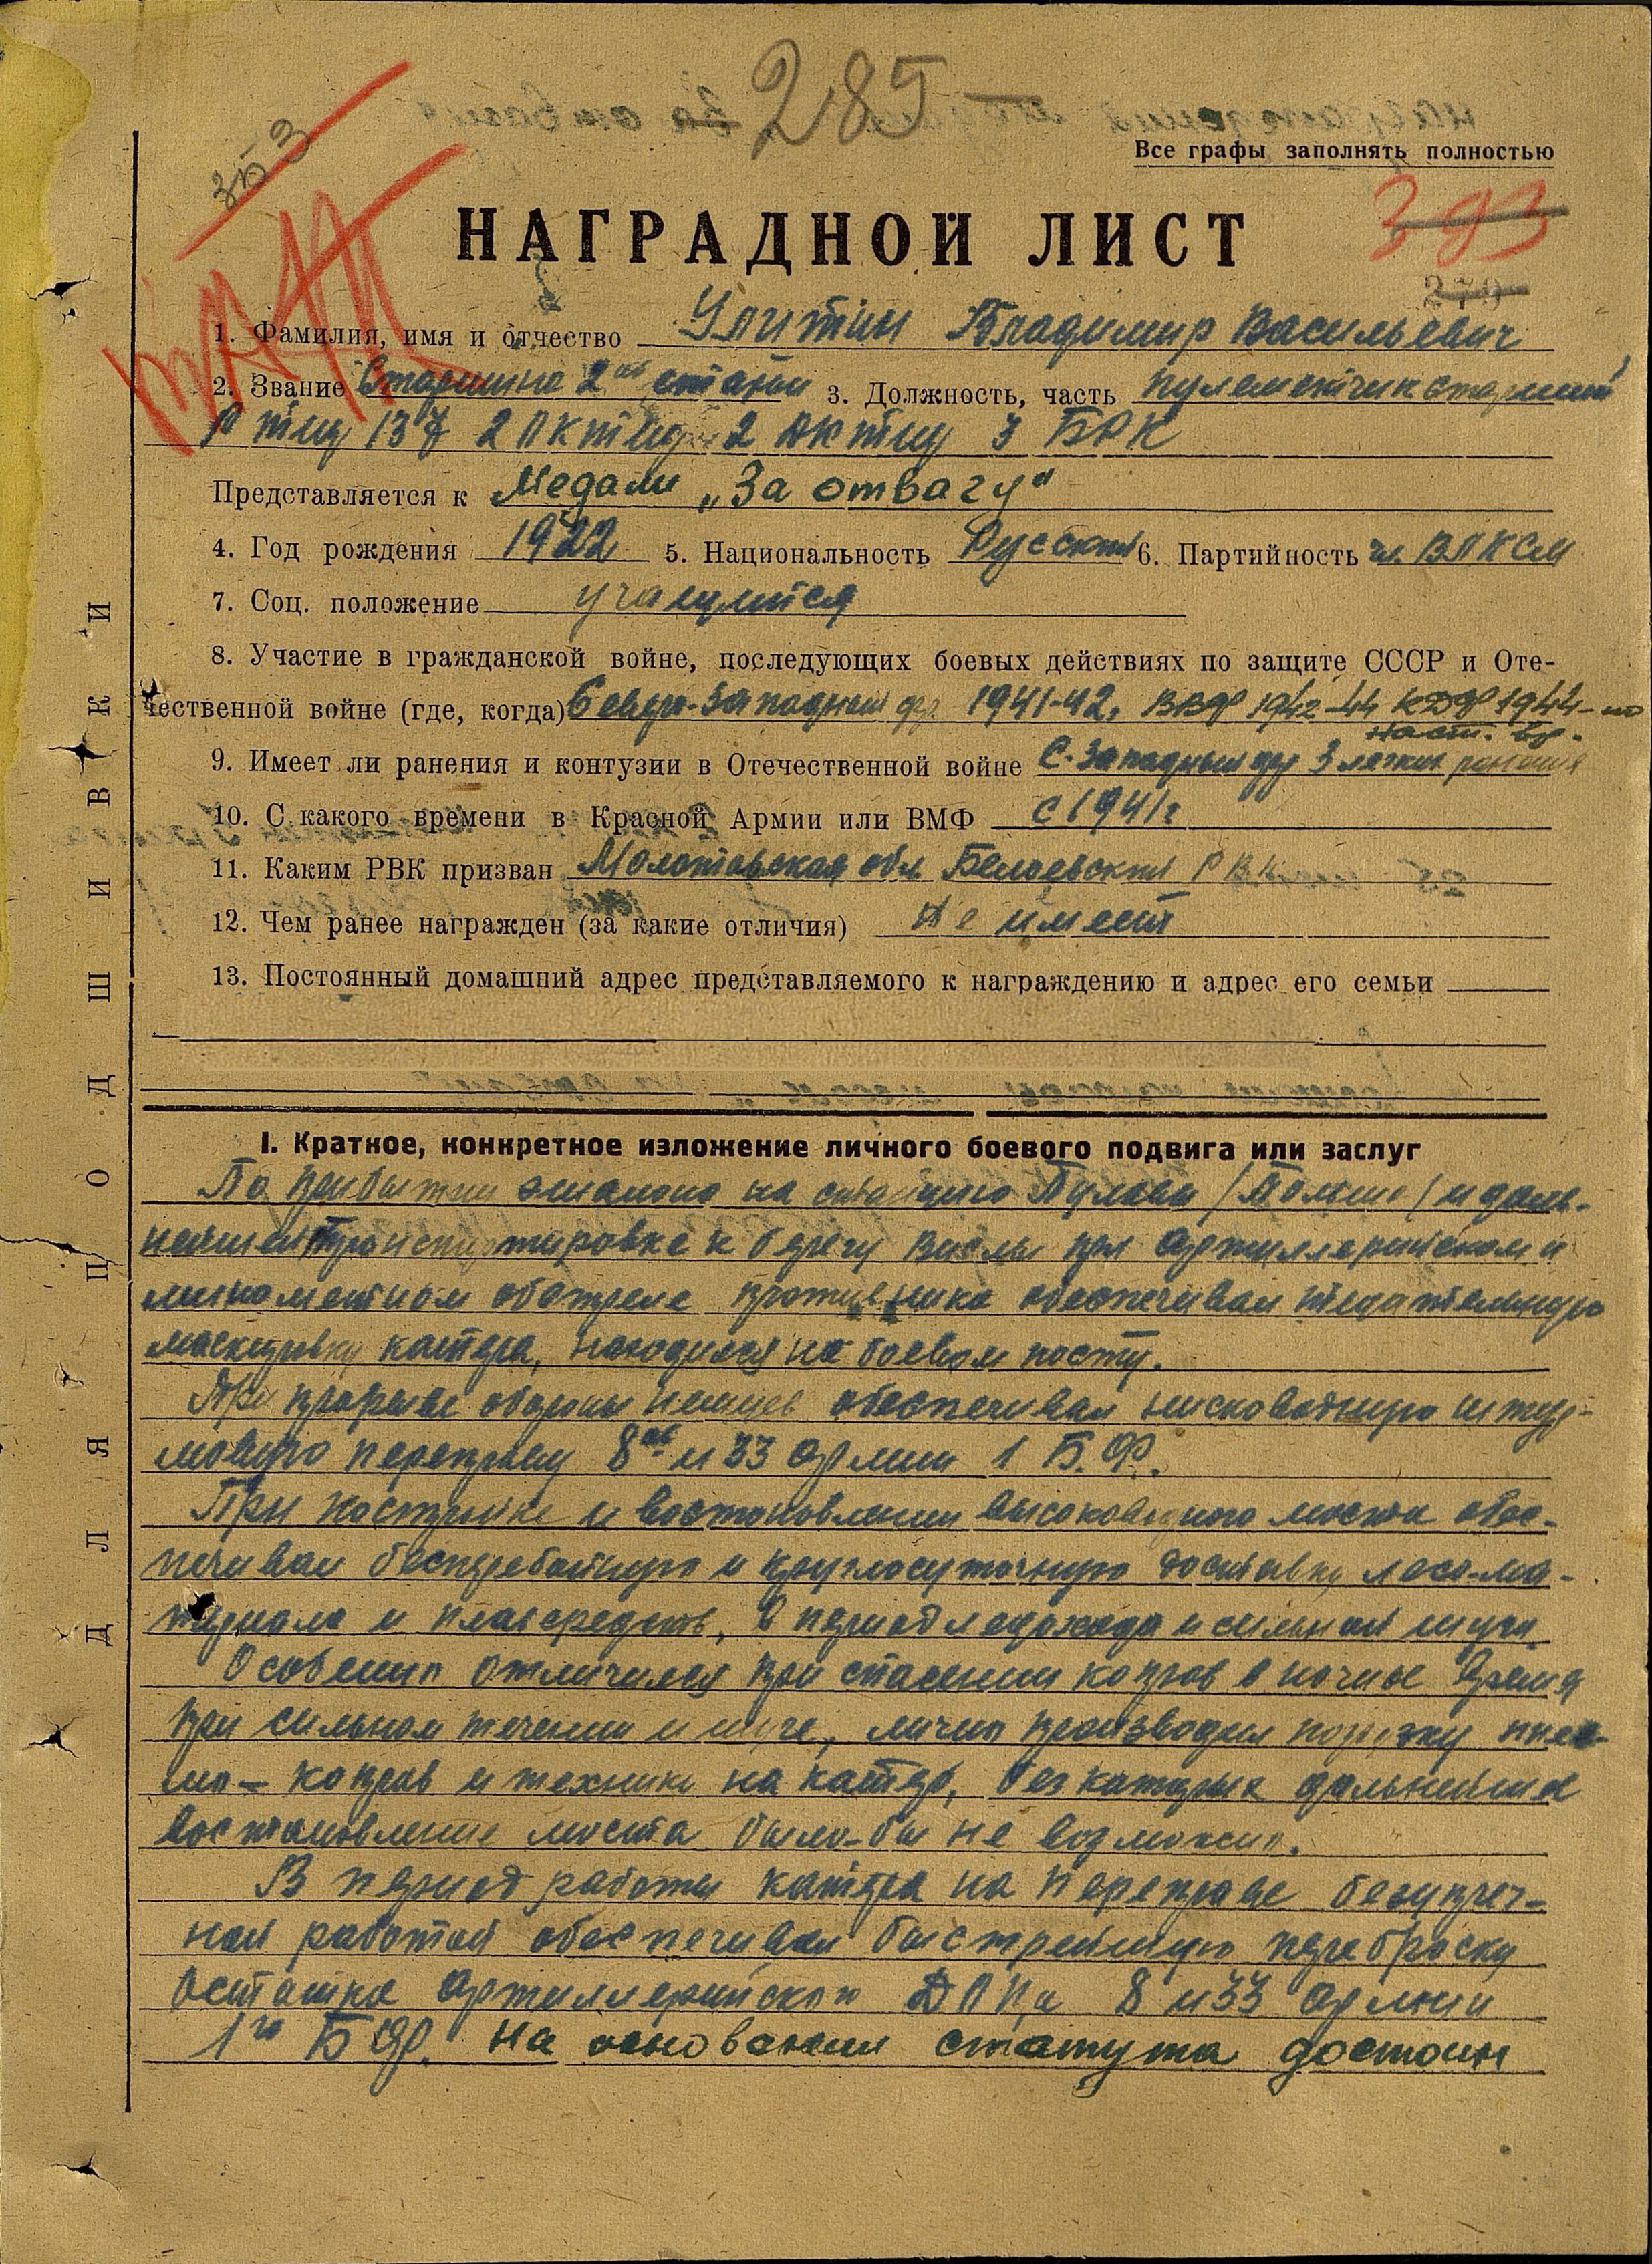 285
Все графы заполнять полностью
НАГРАДНОЙ ЛИСТ
1. Фамилия, имя и отчество Улитин Владимир Васильевич
2. Звание Старшина 2ой статьи 3. Должность, часть пулеметчик старший
2 3 БРК
Представляется к Медали „За отвагу"
4. Год рождения 1922 5. Национальность Русский 6. Партийность чл. ВЛКСМ
7. Соц. положение учащийся
8. Участие в гражданской войне, последующих боевых действиях по защите СССР и Оте-
чественной войне (где, когда) Северо-Западный фр. 1941-42, ВВФ 1942-44 КДФ 1944-по
наст. вр.
9. Имеет ли ранения и контузии в Отечественной войне С-Западный фр 3 легких ранения
10. С какого времени в Красной Армии или ВМФ с 1941г
11. Каким РВК призван Молотовская обл Белоевский РВК
12. Чем ранее награжден (за какие отличия) Не имеет
13. Постоянный домашний адрес представляемого к награждению и адрес его семьи
I. Краткое, конкретное изложение личного боевого подвига или заслуг
По прибытии эшалона на станцию Пулавы /Польша/ и даль-
нейшей транспортировке к берегу Вислы при артиллерийском и
минометном обстреле противника обеспечивал тщательную
маскировку катера, находился на боевом посту.
При прорыве обороны немцев обеспечивал нисководную штур-
мовую переправу 8ой и 33 армии 1 Б.Ф.
При постройке и востоновлении высоководного моста обес-
печивал бесперебойную и круглосуточную доставку лесо-ма-
териала и плавсредств, в период ледохода и сильной шуги.
Особенно отличился при спасении копров в ночное время
при сильном течении и шуге, лично производил погрузку
копров и техники на катер, без которых дальнейшее
востановление моста было-бы не возможно.
В период работы катера на переправе безупреч-
ной работой обеспечивал быстрейшую переброску
остатка артиллерийского 8 и 33 армии
1го БФ. На основании статута достоин
ДЛЯ ПОДШИВКИ